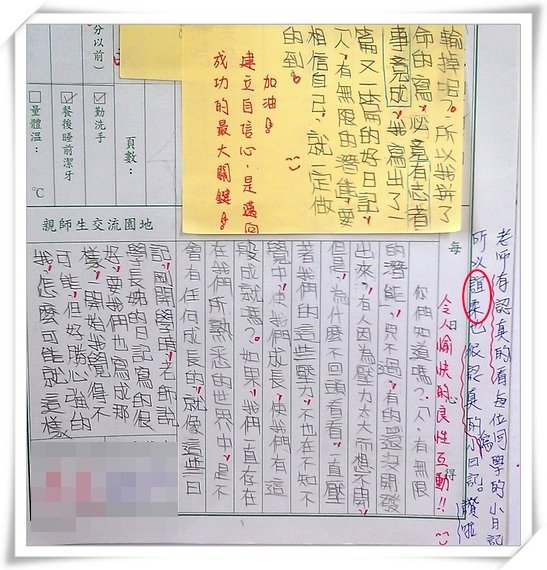 老師認真的看每位同學的小日記
所以誼柔也很認真的小日記。讚啦
令人愉快的良性互動!!
每日心得
你們知道嗎?人有無限
的潛能,只不過,有的還沒開發
出來,有人因為壓力太大而想不開,
但是,為什麼不回頭看看,一直壓
著我們的這些壓力,不也在不知不
覺中,使我們成長,使我們有這
段成就嗎?如果,我們一直存在
在我們所熟悉的世界中,是不
會有任何成長的,就像這些日
記,剛開學時,老師說
學長姊的日記寫的很
好,要我們也寫成那
樣,一開始我覺得不
可能,但好勝心強的
我,怎麼可能就這樣
輸掉呢?所以我拼了
命的寫,必竟有志者
事竟成,我寫出了一
篇又一篇的好日記,
人,有無限的潛能,要
相信自己,就一定做
的到。
加油!
建立自信心,是邁向
成功的最大關鍵!
分以前)
頁數:
☑勤洗手
☑餐後睡前潔牙
□量體溫: ℃
親師生交流園地